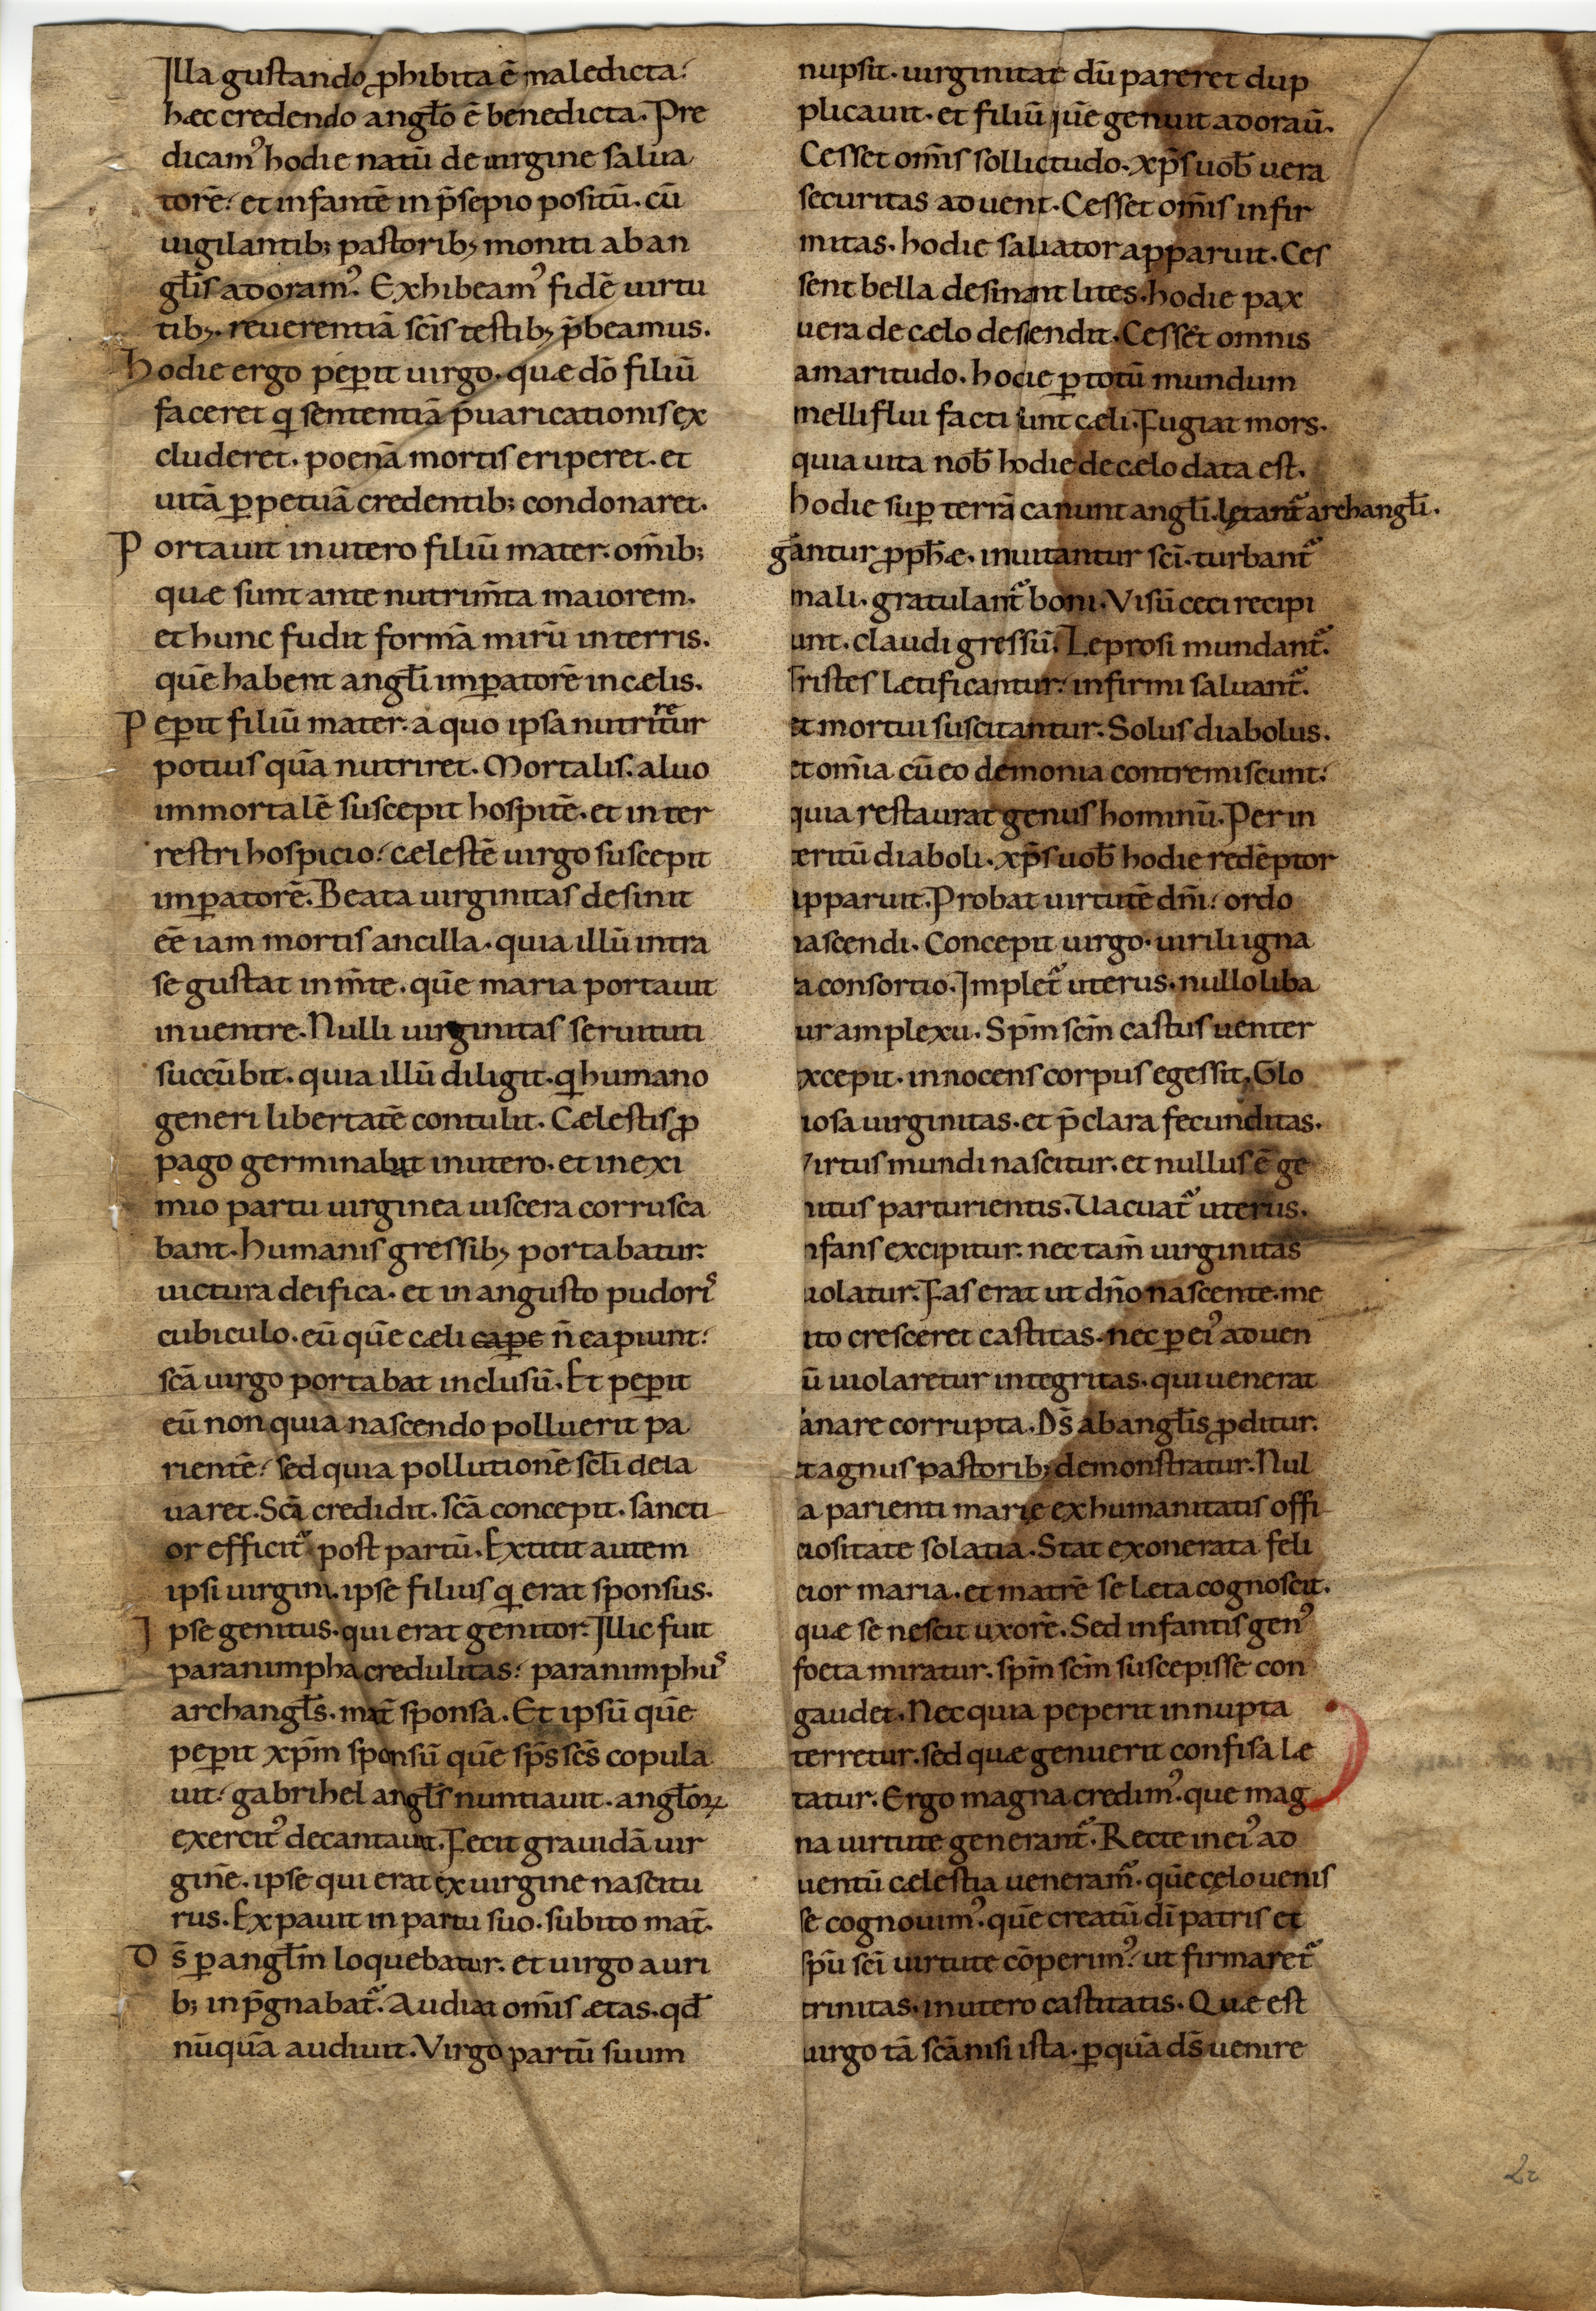 Illa gustando ꝓhibita ē maledicta:
hæc credendo angło ē benedicta. Pre
dicam᾿ hodie natū de uirgine salua
torē: et infantē in p̄sepio positū. cū
uigilantib; pastorib; moniti ab an
głis adoram᾿. Exhibeam᾿ fidē uirtu
tib;. reuerentiā sc̄is testib; p̄beamus.
Hodie ergo peꝑit uirgo. quæ dō filiū
faceret q̇ sententiā p̄uaricationis ex
cluderet. poenā mortis eriperet. et
uitā ꝑpetuā credentib; condonaret.
Portauit in utero filiū mater. om̄ib;
quæ sunt ante nutrim̄ta maiorem.
et hunc fudit formā mirū in terris.
quē habent angłi imꝑatorē in cælis.
Peꝑit filiū mater. a quo ipsa nutriretur
potius quā nutriret. Mortalis. aluo
immortalē suscepit hospitē. et in ter
restri hospicio: cælestē uirgo suscepit
imꝑatorē. Beata uirginitas desinit
eē iam mortis ancilla. quia illū intra
se gustat in m̄te. quē maria portauit
in uentre. Nulli uirginitas seruituti
succūbit. quia illū diligit. q̇ humano
generi libertatē contulit. Cælestis ꝓ
pago germinabat in utero. et in exi
mio partu uirginea uiscera corrusca
bant. humanis gressib; portabatur.
uictura deifica. et in angusto pudori᾿
cubiculo. eū quē cæli cape n̄ capiunt:
sc̄a uirgo portabat inclusū. Et peꝑit
eū non quia nascendo polluerit pa
rientē: sed quia pollutionē scłi dela
uaret. Sc̄a credidit. sc̄a concepit. sancti
or efficit᾿ post partū. Extitit autem
ipsi uirgini. ipse filius q̇ erat sponsus.
Ipse genitus. qui erat genitor. Illic fuit
paranimpha credulitas: paranimphu᾿
archangłs. mat̄ sponsa. Et ipsū quē
peꝑit xp̄m sponsū quē sp̄s sc̄s copula
uit: gabrihel angłs nuntiauit. angłoꝝ
exercit᾿ decantauit. Fecit grauidā uir
ginē. ipse qui erat ex uirgine nascitu
rus. Expauit in partu suo. subito mat̄.
Ds̄ ꝑ angłm loquebatur. et uirgo auri
b; inp̄gnabat᾿. Audiat om̄is ætas. qd̄
nūquā audiuit. Virgo partū suum
nupsit. uirginitatē dū pareret dup
plicauit. et filiū quē genuit adoraū.
Cesset om̄is sollictudo. xp̄s uob̄ uera
securitas aduenit. Cesset om̄is infir
mitas. hodie saluator apparuit. Ces
sent bella desinant lites. hodie pax
uera de cælo desendit. Cesset omnis
amaritudo. hodie ꝑ totū mundum
melliflui facti sunt cæli. Fugiat mors.
quia uita nob̄ hodie de cælo data est.
hodie suꝑ terrā canunt angłi. lętant᾿ archangłi.
gantur ꝓph̄æ. inuitantur sc̄i. turbant᾿
mali. gratulant᾿ boni. Visū ceci recipi
unt. claudi gressū. Leprosi mundant᾿.
tristes lætificantur: infirmi saluant᾿.
et mortui suscitantur. Solus diabolus.
et om̄ia cū eo demonia contremiscunt:
quia restaurat genus hominū. Per in
teritū diaboli. xp̄s uob̄ hodie redēptor
apparuit. Probat uirtutē dn̄i: ordo
nascendi. Concepit uirgo. uirili igna
a consortio. Implet᾿ uterus. nullo liba
ur amplexu. Sp̄m sc̄m castus uenter
xcepit. innocens corpus egessit. Glo
iosa uirginitas. et p̄clara fecunditas.
Virtus mundi nascitur. et nullus ē ge
itus parturientis. Uacuat᾿ uterus.
nfans excipitur. nec tam̄ uirginitas
uiolatur. Fas erat ut dn̄o nascente. me
ito cresceret castitas. nec ꝑ ei᾿ aduen
ū uiolaretur integritas. qui uenerat
anare corrupta. Ds̄ ab angłis ꝓditur.
et agnus pastorib; demonstratur. Nul
a parienti marię ex humanitatis offi
ciositate solatia. Stat exonerata feli
cior maria. et matrē se leta cognoscit.
quæ se nescit uxorē. Sed infantis gen᾿
foeta miratur. sp̄m sc̄m suscepisse con
gaudet. Nec quia peperit innupta
terretur. sed quæ genuerit confisa læ
tatur. Ergo magna credim᾿. que mag
na uirtute generant᾿. Recte in ei᾿ ad
uentū cælestia ueneram᾿. quē cęlo uenis
se cognouim᾿. quē creatū dī patris et
sp̄u sc̄i uirtute cōperim᾿: ut firmaret᾿
trinitas. in utero castitatis. Quæ est
uirgo tā sc̄a nisi ista. ꝑ quā ds̄ uenire
2r